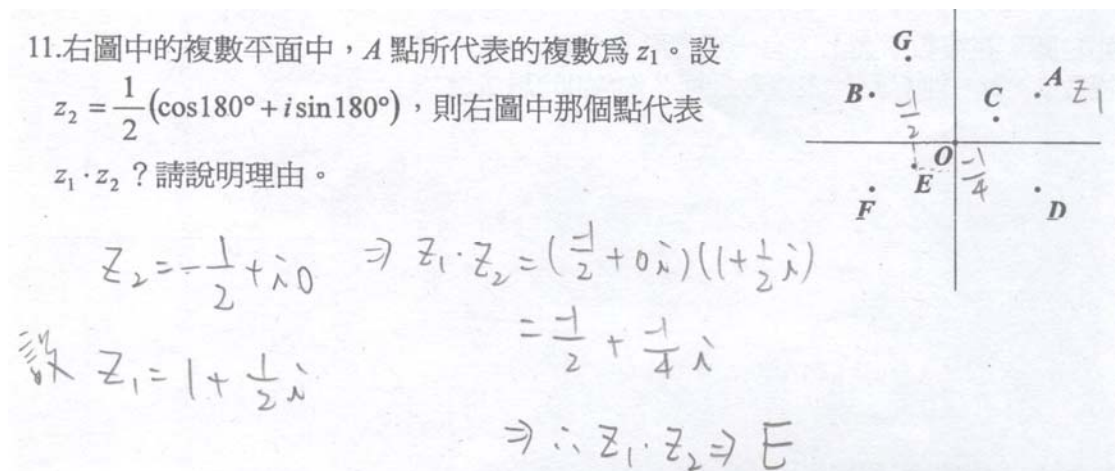 11.右圖中的複數平面中，A 點所代表的複數為 z₁。設
z₂ = 1/2 (cos180° + i sin180°)，則右圖中那個點代表
z₁ · z₂？請說明理由。
G
A Z₁
B
C
-1/2
O
E
-1/4
F
D
Z₂ = -1/2 + i0 ⇒ Z₁·Z₂ = (-1/2 + 0i)(1 + 1/2 i)
= -1/2 + -1/4 i
設 Z₁ = 1 + 1/2 i
⇒ ∴ Z₁·Z₂ ⇒ E